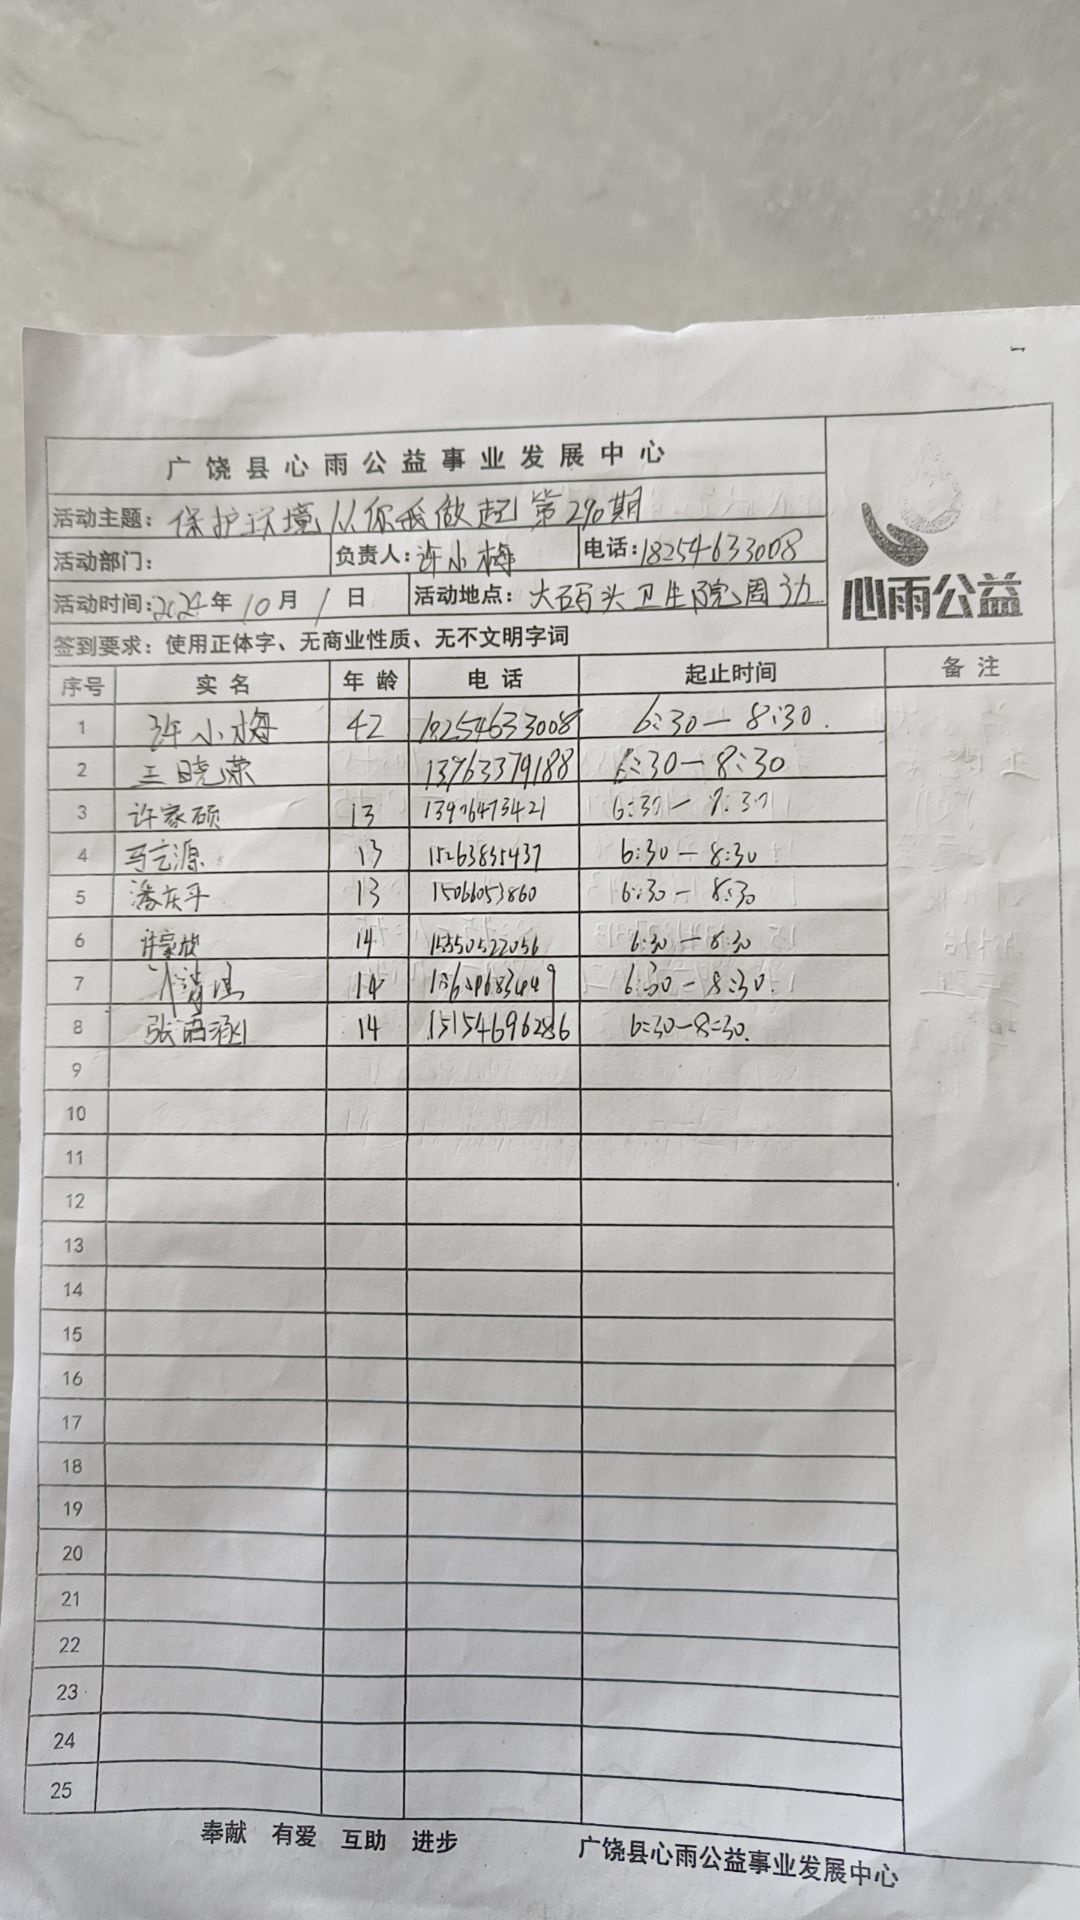 广饶县心雨公益事业发展中心
活动主题：保护环境从你我做起第290期
活动部门： 负责人：许小梅 电话：18254633008
活动时间：2024年10月1日 活动地点：大码头卫生院周边
心雨公益
签到要求：使用正体字、无商业性质、无不文明字词
序号 实名 年龄 电话 起止时间 备注
1 许小梅 42 18254633008 6:30—8:30.
2 王晓荣 13963379188 6:30—8:30
3 许家硕 13 13906473421 6:30—8:30
4 马立源 13 15263835437 6:30—8:30
5 潘庆平 13 15066053860 6:30—8:30
6 许家欣 14 15550522056 6:30—8:30
7 14 6:30—8:30.
8 张语涵 14 15154696286 6:30—8:30.
9
10
11
12
13
14
15
16
17
18
19
20
21
22
23
24
25
奉献 有爱 互助 进步 广饶县心雨公益事业发展中心